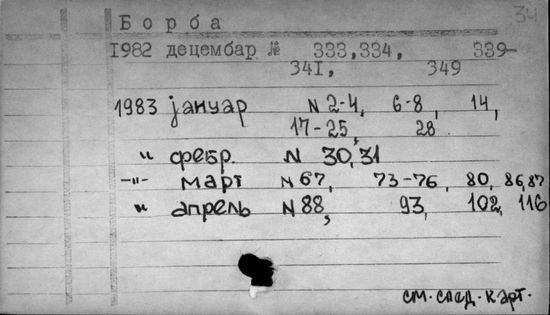 34
Борба
1982 децембар № 333,334, 339-
341, 349
1983 јануар N 2-4, 6-8, 14,
17-25, 28
" фебр. N 30,31
-"- март N 67, 73-76, 80, 86,87
" апрель N 88, 93, 102, 116
см. след. карт.